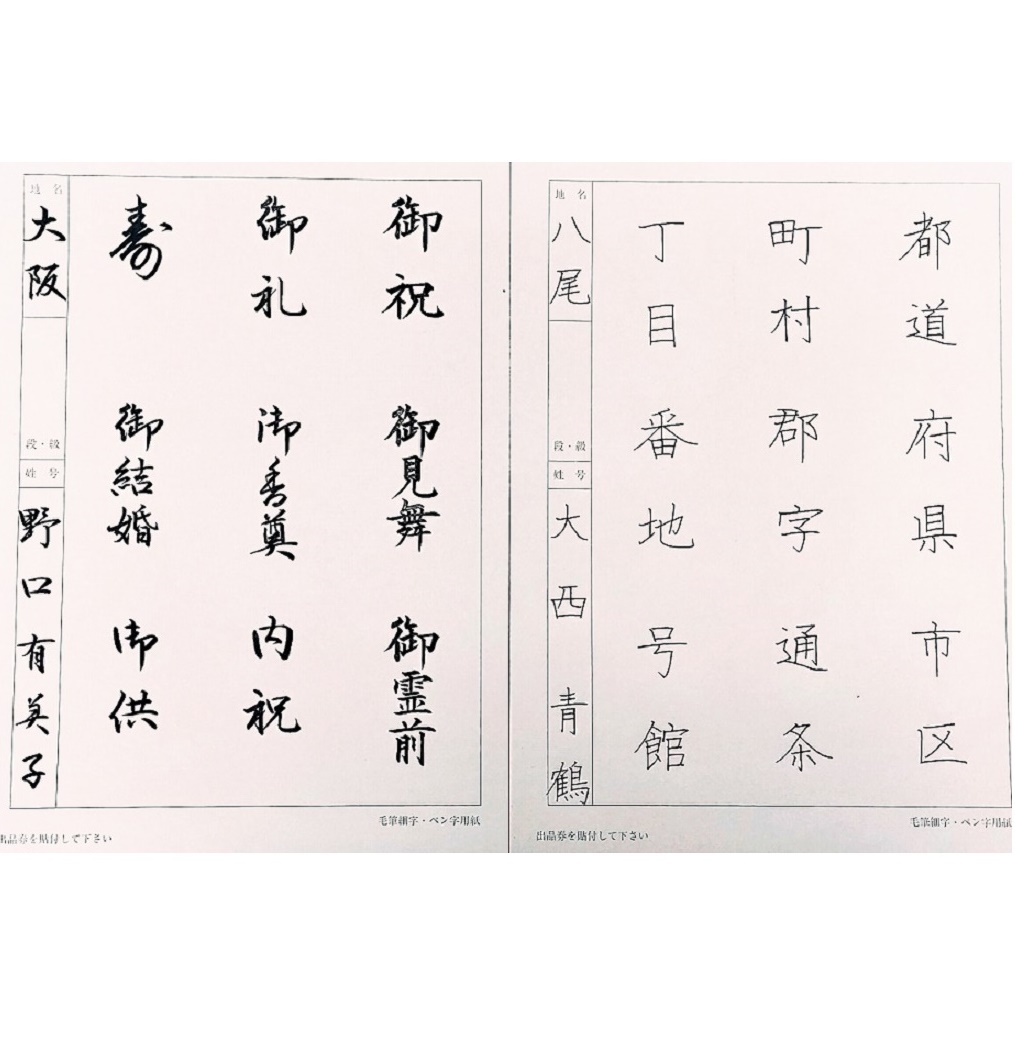 御祝　御見舞　御霊前
御礼　御香奠　内祝
寿　御結婚　御供
地名
大阪
段・級
姓号
野口有美子
毛筆細字・ペン字用紙
出品券を貼付して下さい
都道府県市区
町村郡字通条
丁目番地号館
地名
八尾
段・級
姓号
大西青鶴
毛筆細字・ペン字用紙
出品券を貼付して下さい